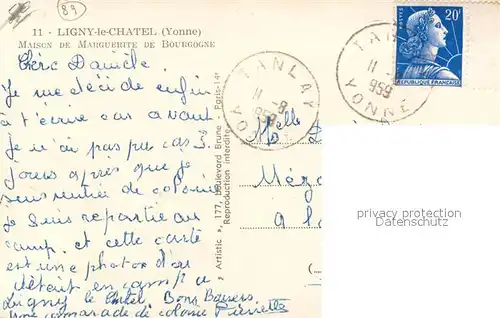 89
11 - LIGNY-le-CHATEL (Yonne)
MAISON DE MARGUERITE DE BOURGOGNE
Chère Danièle
Je me décide enfin
à t'écrire car avant
Je n'ai pas pu car 3
jours après que je
sens rentrée de colonie
je sens repartie au
camp et cette carte
est une photo d'
était en camp a
Ligny le Chatel. Bons Baisers
une camarade de colonie Pierrette
« Artistic », 177, boulevard Brune - Paris-14e
Reproduction interdite
TANLAY
11 -8
1959
YONNE
TAN
11
959
YONNE
POSTES
20F
REPUBLIQUE FRANCAISE
Melle
a
privacy protection
Datenschutz